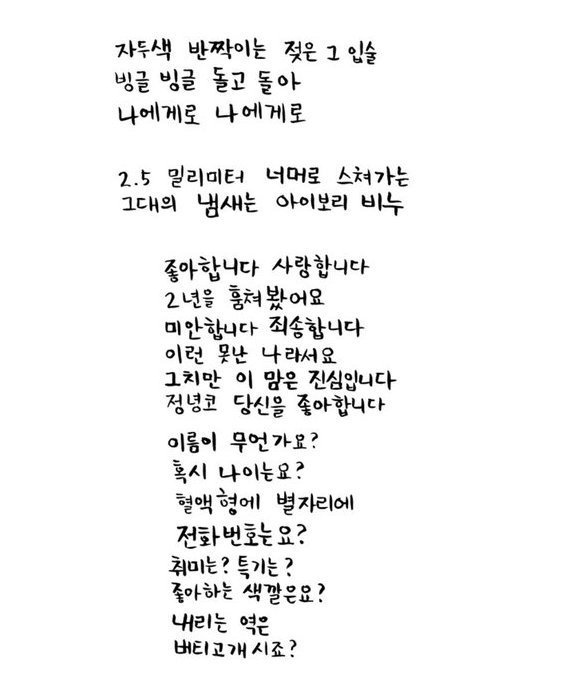 자두색 반짝이는 젖은 그 입술
빙글 빙글 돌고 돌아
나에게로 나에게로
2.5 밀리미터 너머로 스쳐가는
그대의 냄새는 아이보리 비누
좋아합니다 사랑합니다
2년을 훔쳐봤어요
미안합니다 죄송합니다
이런 못난 나라서요
그치만 이 맘은 진심입니다
정녕코 당신을 좋아합니다
이름이 무언가요?
혹시 나이는요?
혈액형에 별자리에
전화번호는요?
취미는? 특기는?
좋아하는 색깔은요?
내리는 역은
버티고개시죠?